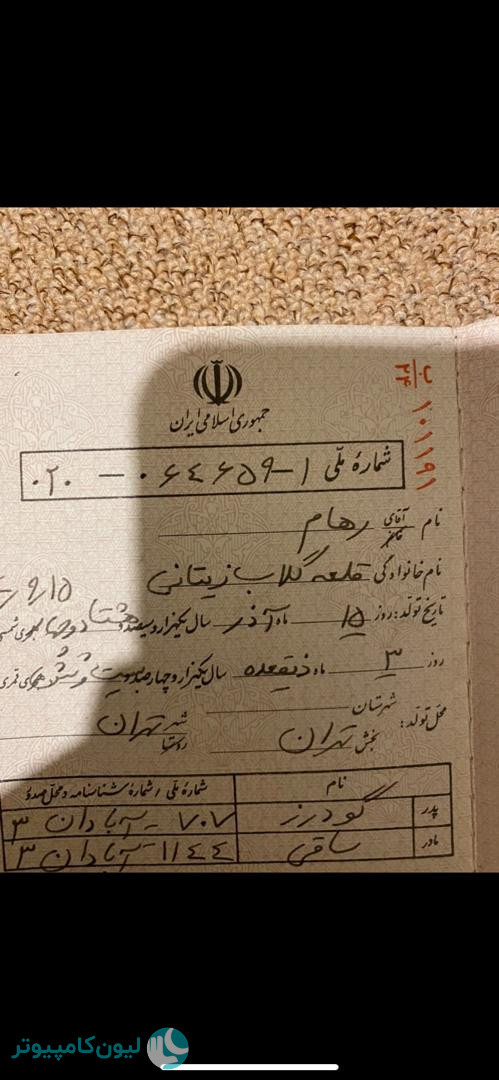 جمهوری اسلامی ایران
ب
۲۴
۱۰۱۱۹۱
شماره ملّی ۱-۰۶۴۶۵۹-۰۲۰
نام آقای رهام
خانم
نام خانوادگی قلعه گلاب زیتانی
تاریخ تولد: روز ۱۵ ماه آذر سال یکهزار و سیصد و هشتاد و چهار هجری شمسی
روز ۳ ماه ذیقعده سال یکهزار و چهارصد و بیست و شش هجری قمری
محل تولد: شهرستان
بخش تهران شهر تهران
روستا
نام شماره ملی / شماره شناسنامه و محل صدور
پدر گودرز ۷۰۷ - آبادان ۳
مادر ساقی ۱۱۴۴ - آبادان ۳
لیون کامپیوتر